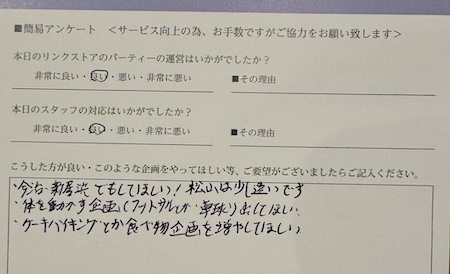 ■簡易アンケート <サービス向上の為、お手数ですがご協力をお願い致します>
本日のリンクストアのパーティーの運営はいかがでしたか?
非常に良い・良い・悪い・非常に悪い ■その理由
本日のスタッフの対応はいかがでしたか?
非常に良い・良い・悪い・非常に悪い ■その理由
こうした方が良い・このような企画をやってほしい等、ご要望がございましたらご記入ください。
・今治・新居浜でもしてほしい!松山は少し遠いです
・体を動かす企画(フットサルとか卓球)出してほしい
・ケーキバイキングとか食べ物企画を増やしてほしい